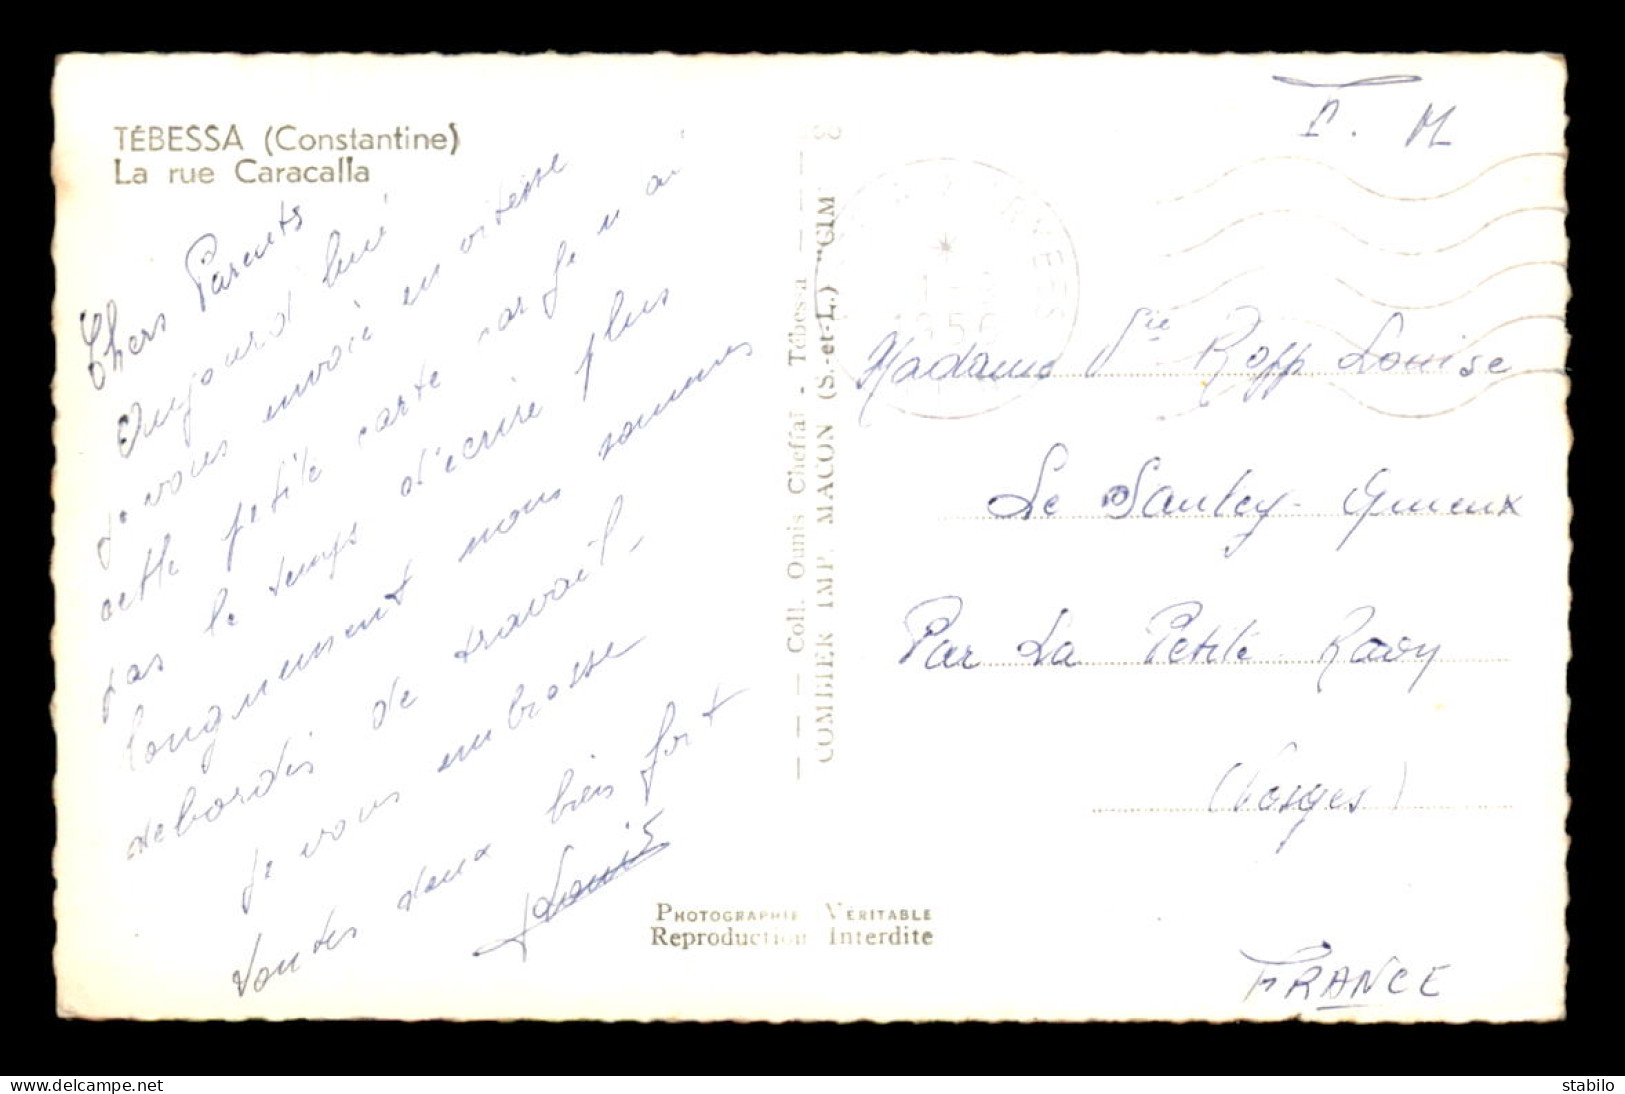 TÉBESSA (Constantine)
La rue Caracalla
Chers Parents
Aujourd'hui
je vous envoie en vitesse
cette petite carte car je n'ai
pas le temps d'écrire plus
longuement nous sommes
debordés de travail.
Je vous embrasse
toutes deux bien fort
Louis
Coll. Ounis Cheffaï - Tébessa
COMBIER IMP. MACON (S.-et-L.) "CIM"
PHOTOGRAPHIE VÉRITABLE
Reproduction Interdite
F. M
Madame Vve Ropp Louise
Le Saulcy
Par La Petite Raon
(Vosges)
FRANCE
www.delcampe.net
stabilo